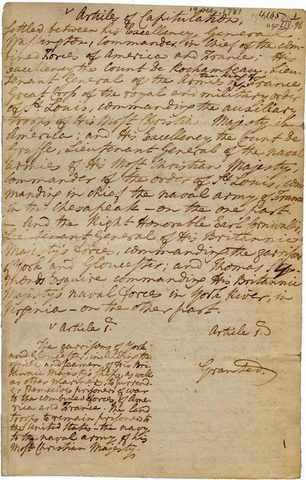 Articles of Capitulation,
settled between his Excellency General
Washington, Commander in chief of the com-
bined Forces of America and France; His
Excellency the Count de Rochambeau, Lieu-
tenant General of the Armies of the King of France,
Great Cross of the royal and military order
of St. Louis, commanding the auxiliary
troops of His Most Christian Majesty in
America; and His Excellency the Count de
Grasse, Lieutenant General of the naval
Armies of His Most Christian Majesty,
Commander of the order of St. Louis, com-
manding in chief the naval army of France
in the Chesapeak — on the one part
— And the Right Honorable Earl Cornwallis,
Lieutenant General of His Britannic
Majesty's Forces, commanding the garrisons
of York and Gloucester; and Thomas Sy-
monds Esquire commanding His Britannic
Majesty's naval forces in York River, in
Virginia — on the other part.
Article 1.
The garrisons of York
and Gloucester, including the
officers and seamen of His Bri-
tannic Majesty's ships, as well
as other mariners, to surrend-
er themselves prisoners of war
to the combined forces of Ame-
rica and France. The land
troops to remain prisoners to
the United States — the navy
to the naval army of his
Most Christian Majesty.
Article 1.
Granted.